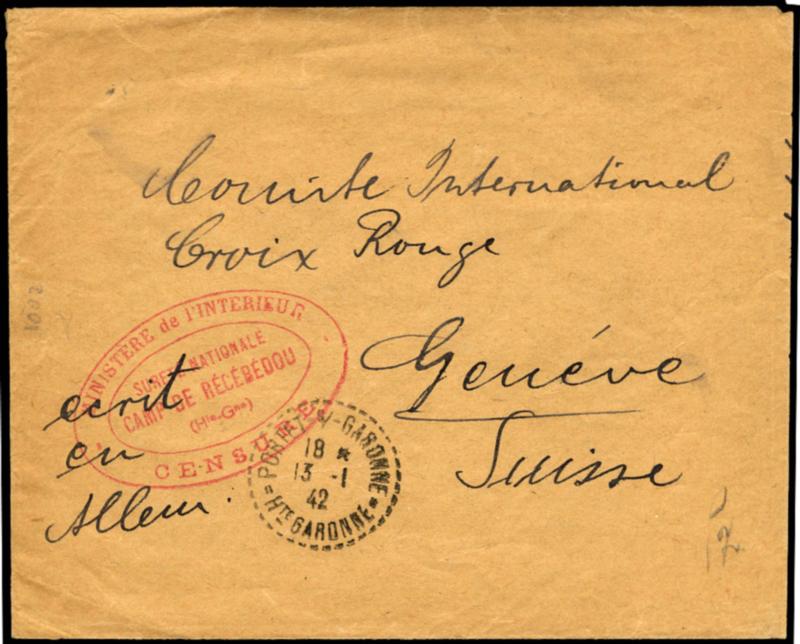 Comite International
Croix Rouge
Genéve
Suisse
ecrit
en
Allem.
MINISTÈRE de l'INTERIEUR
SURETÉ NATIONALE
CAMP DE RÉCÉBÉDOU
(Hte-Gne)
CENSURE
PORTET-S/-GARONNE
18 *
13 -1
42
HTE GARONNE
1002